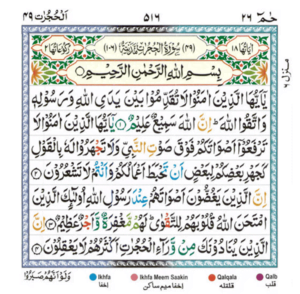 اَلْحُجُرٰت ٤٩ ٥١٦ حٰمٓ ٢٦
اٰيَاتُهَا ١٨ (٤٩) سُوْرَةُ الْحُجُرٰتِ مَدَنِيَّةٌ (١٠٦) رُكُوْعَاتُهَا ٢
بِسْمِ اللّٰهِ الرَّحْمٰنِ الرَّحِيْمِ
يٰۤاَيُّهَا الَّذِيْنَ اٰمَنُوْا لَا تُقَدِّمُوْا بَيْنَ يَدَيِ اللّٰهِ وَرَسُوْلِهٖ
وَاتَّقُوا اللّٰهَ ؕ اِنَّ اللّٰهَ سَمِيْعٌ عَلِيْمٌ ۝١ يٰۤاَيُّهَا الَّذِيْنَ اٰمَنُوْا لَا
تَرْفَعُوْۤا اَصْوَاتَكُمْ فَوْقَ صَوْتِ النَّبِيِّ وَلَا تَجْهَرُوْا لَهٗ بِالْقَوْلِ
كَجَهْرِ بَعْضِكُمْ لِبَعْضٍ اَنْ تَحْبَطَ اَعْمَالُكُمْ وَاَنْتُمْ لَا تَشْعُرُوْنَ ۝٢
اِنَّ الَّذِيْنَ يَغُضُّوْنَ اَصْوَاتَهُمْ عِنْدَ رَسُوْلِ اللّٰهِ اُولٰٓئِكَ الَّذِيْنَ
امْتَحَنَ اللّٰهُ قُلُوْبَهُمْ لِلتَّقْوٰى ؕ لَهُمْ مَّغْفِرَةٌ وَّاَجْرٌ عَظِيْمٌ ۝٣ اِنَّ
الَّذِيْنَ يُنَادُوْنَكَ مِنْ وَّرَآءِ الْحُجُرٰتِ اَكْثَرُهُمْ لَا يَعْقِلُوْنَ ۝٤
وَلَوْ اَنَّهُمْ صَبَرُوْا Ikhfa اخفا Ikhfa Meem Saakin اخفا میم ساکن Qalqala قلقله Qalb قلب
منزل ٦